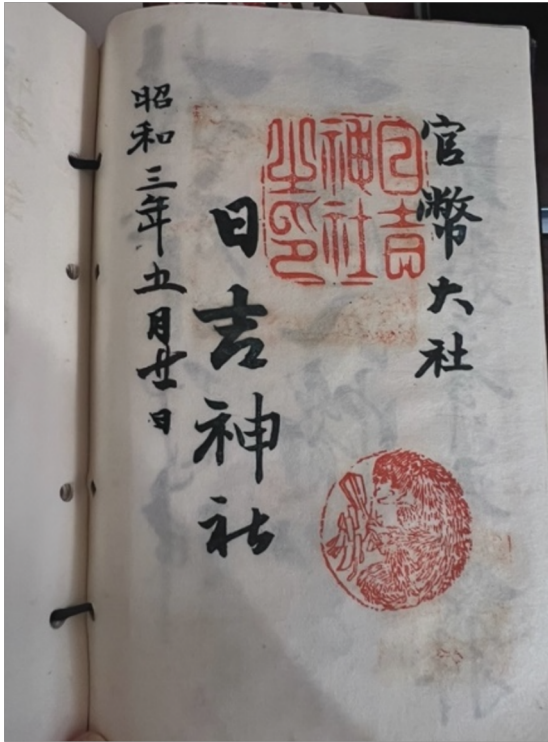 官幣大社
日吉
神社
之印
日吉神社
昭和三年五月廿一日